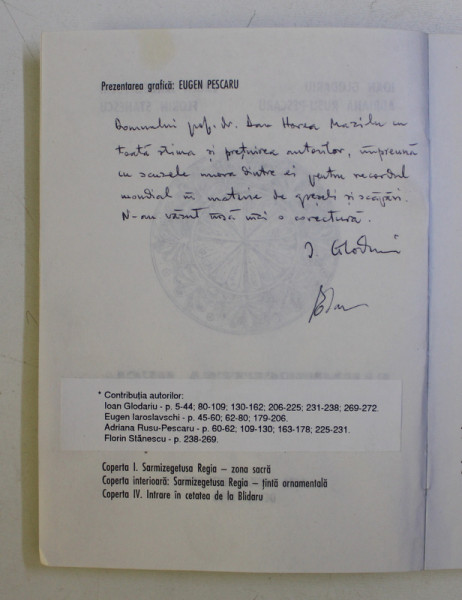 Prezentarea grafică: EUGEN PESCARU
Domnului prof. dr. Dan Horea Mazilu cu
toată stima și prețuirea autorilor, împreună
cu scuzele unora dintre ei pentru recordul
mondial în materie de greșeli și scăpări.
N-au văzut însă nici o corectură.
I. Glodariu
* Contribuția autorilor:
Ioan Glodariu - p. 5-44; 80-109; 130-162; 206-225; 231-238; 269-272.
Eugen Iaroslavschi - p. 45-60; 62-80; 179-206.
Adriana Rusu-Pescaru - p. 60-62; 109-130; 163-178; 225-231.
Florin Stănescu - p. 238-269.
Coperta I. Sarmizegetusa Regia – zona sacră
Coperta interioară: Sarmizegetusa Regia – țintă ornamentală
Coperta IV. Intrare în cetatea de la Blidaru